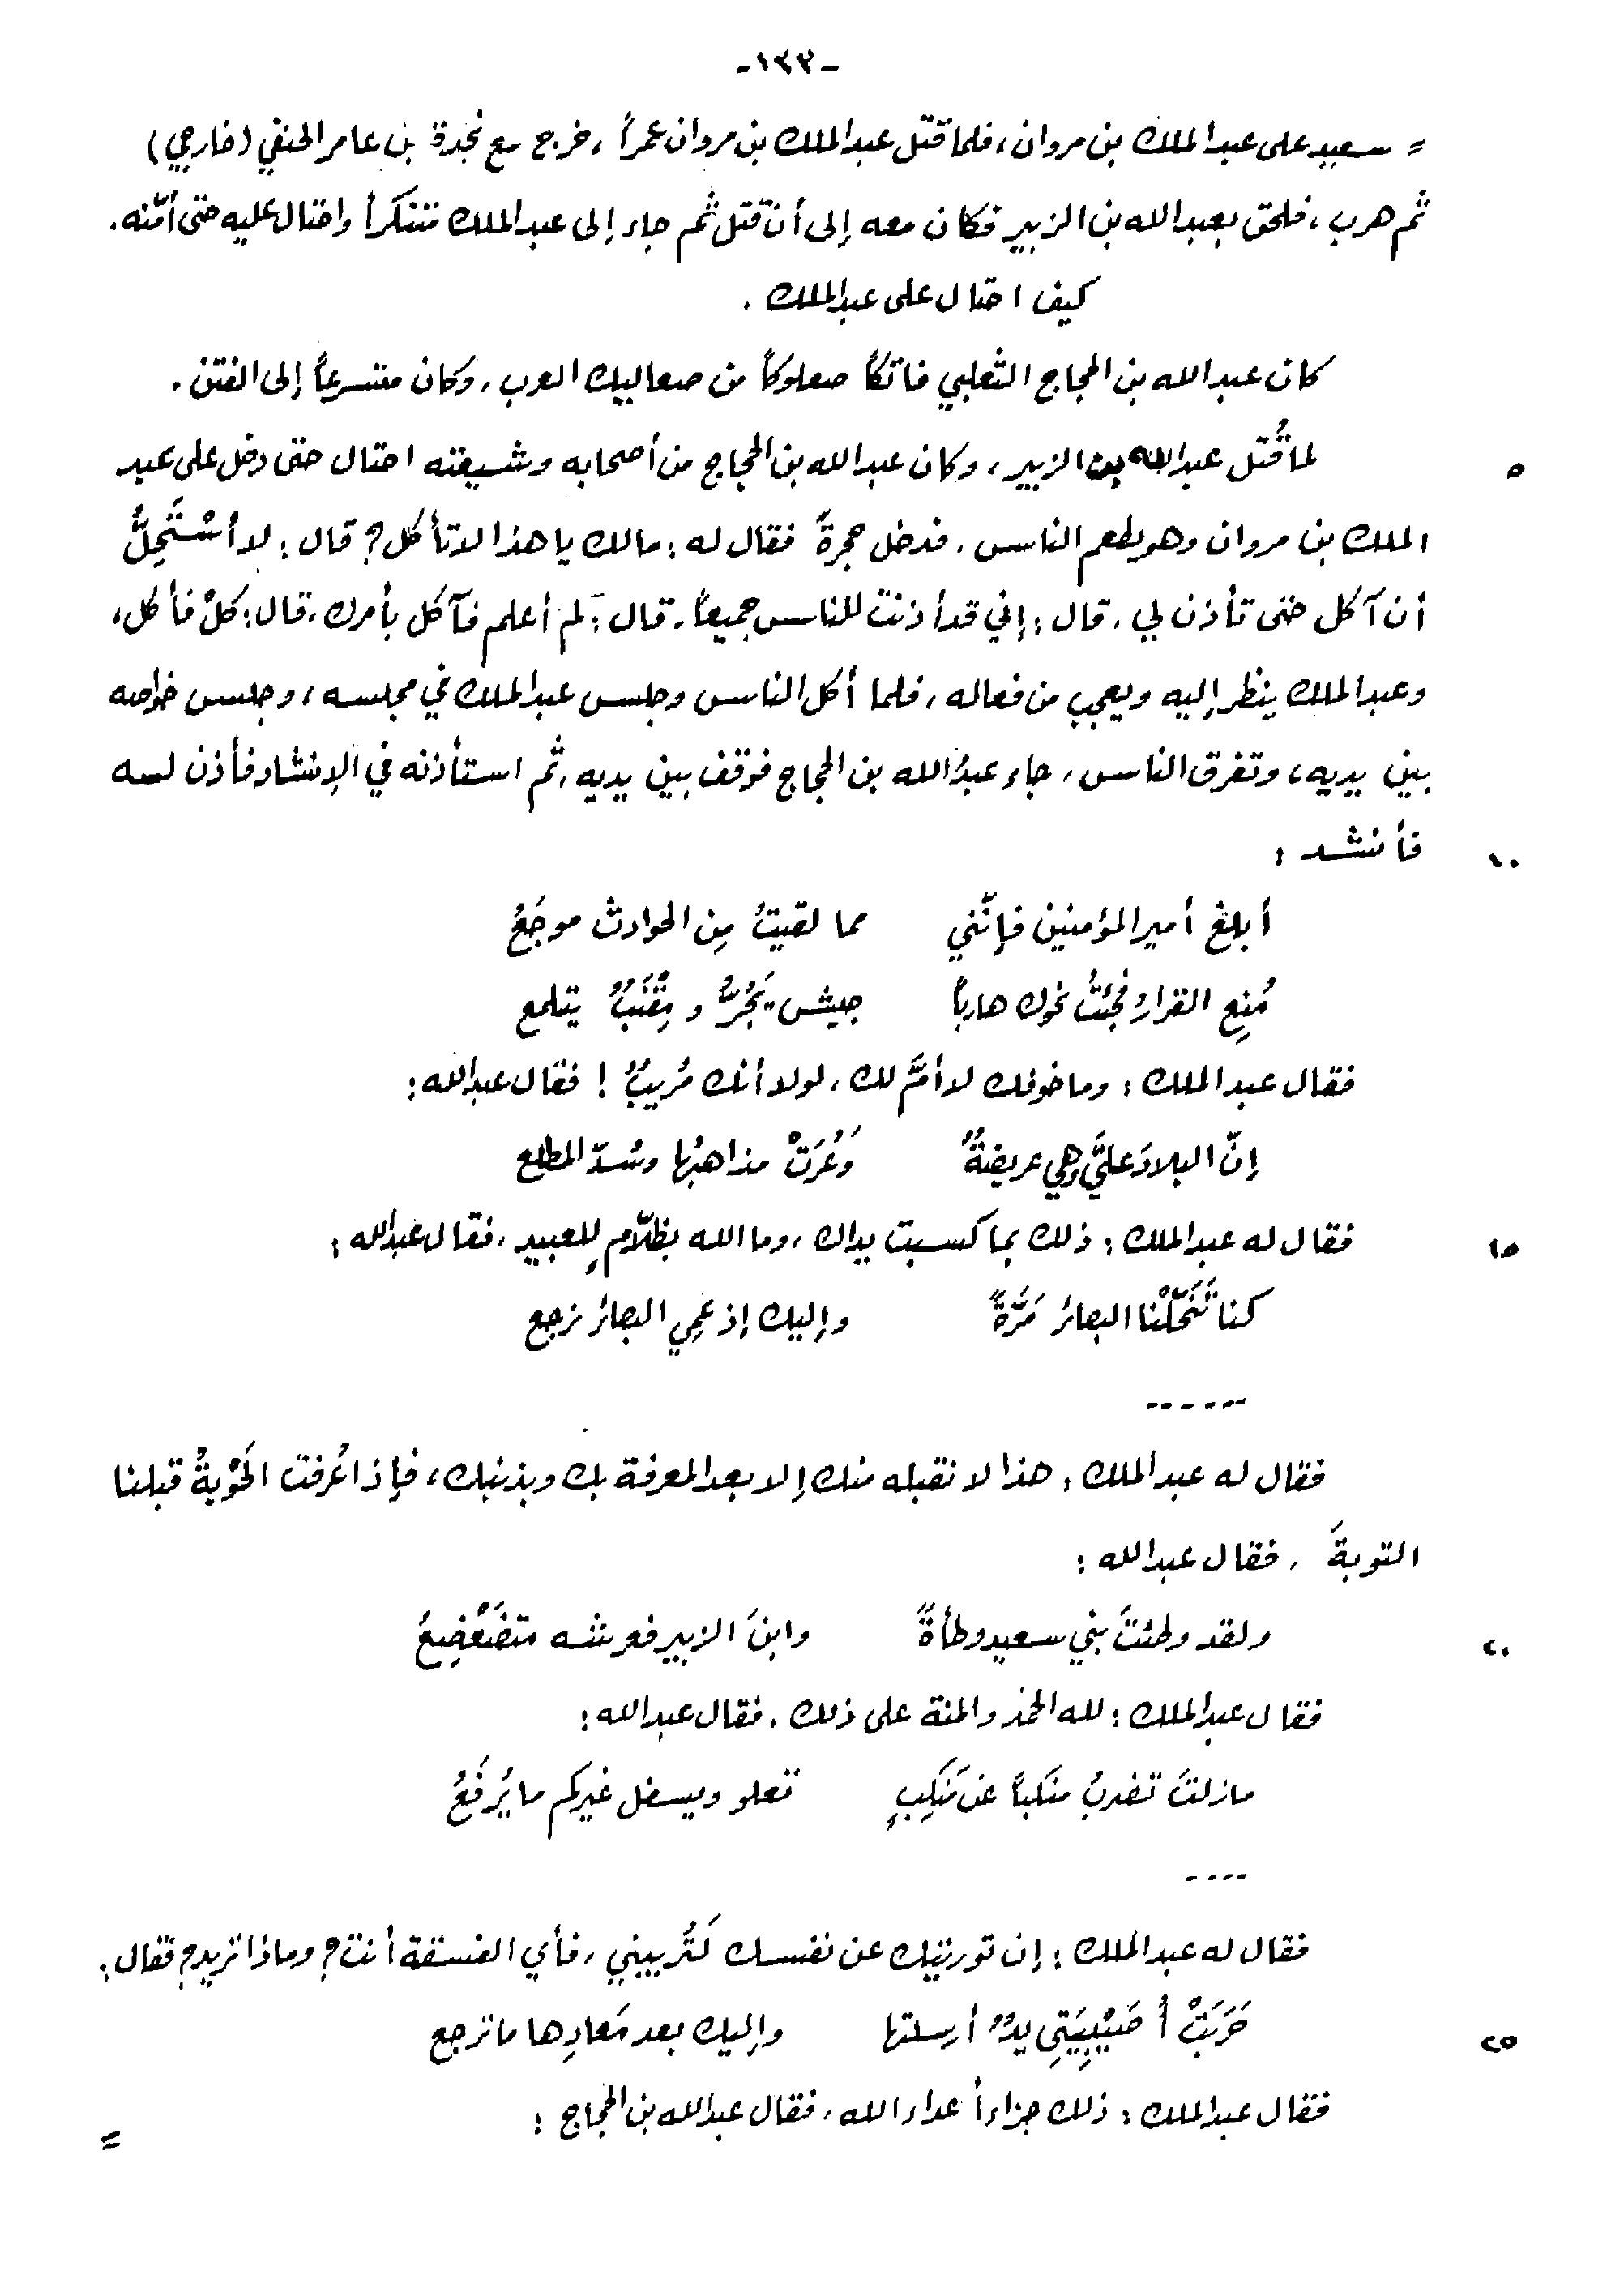 -١٣٣-
= سعيد على عبد الملك بن مروان، فلما قتل عبد الملك بن مروان عمراً، خرج مع نجدة بن عامر الحنفي (خارجي)
ثم هرب، فلحق بعبد الله بن الزبير فكان معه إلى أن قتل ثم جاء إلى عبد الملك متنكراً واحتال عليه حتى أمّنه.
كيف احتال على عبد الملك.
كان عبد الله بن الحجاج الثعلبي فاتكاً صعلوكاً من صعاليك العرب، وكان متسرعاً إلى الفتن.
٥ لما قُتل عبد الله بن الزبير، وكان عبد الله بن الحجاج من أصحابه وشيعته احتال حتى دخل على عبد
الملك بن مروان وهو يطعم الناس، فدخل حجرةً فقال له: مالك يا هذا لا تأكل؟ قال: لا أسْتَحِلُّ
أن آكل حتى تأذن لي، قال: إني قد أذنت للناس جميعاً، قال: لم أعلم فآكل بأمرك، قال: كلْ فأكل،
وعبد الملك ينظر إليه ويعجب من فعاله، فلما أكل الناس وجلس عبد الملك في مجلسه، وجلس خواصه
بين يديه، وتفرق الناس، جاء عبدُ الله بن الحجاج فوقف بين يديه، ثم استأذنه في الإنشاد فأذن لـه
١٠ فأنشد:
أبلغ أمير المؤمنين فإنّني مما لقيتُ مِن الحوادث موجَعُ
مُنِع القرارُ فجُئتُ نحوك هارباً جيش يَجُرُّ و مِقْنَبٌ يتلمع
فقال عبد الملك: وما خوفك لا أمَّ لك، لولا أنك مُريبٌ! فقال عبد الله:
إنّ البلادَ عليَّ وهي عريضةٌ وَعُرَتْ مذاهبُها وسُدّ المطلع
١٥ فقال له عبد الملك: ذلك بما كسبت يداك، وما الله بظلّامٍ للعبيد، فقال عبد الله:
كنا تَنَحَّلْنا البصائر مَرَّةً وإليك إذ عَمِي البصائر نرجع
------
فقال له عبد الملك: هذا لا نقبله منك إلا بعد المعرفة بك وبذنبك، فإذا عُرفت الحَوْبةُ قبلنا
التوبةَ، فقال عبد الله:
٢٠ ولقد وطئتَ بني سعيد وطأةً وابنَ الزبير فعرشه متضَعْضِعُ
فقال عبد الملك: لله الحمد والمنة على ذلك، فقال عبد الله:
مازلتَ تضربُ منكباً عن مَنكِبٍ تعلو ويسفل غيركم ما يُرفَعُ
----
فقال له عبد الملك: إن توريتك عن نفسك لَتُريبني، فأي الفسقة أنت؟ وماذا تريد؟ فقال:
٢٥ حَرَبَتْ أُصَيْبِيَتِي يدٌ أرسلتها وإليك بعد مَعادِها ما ترجع
فقال عبد الملك: ذلك جزاء أعداء الله، فقال عبد الله بن الحجاج:
=